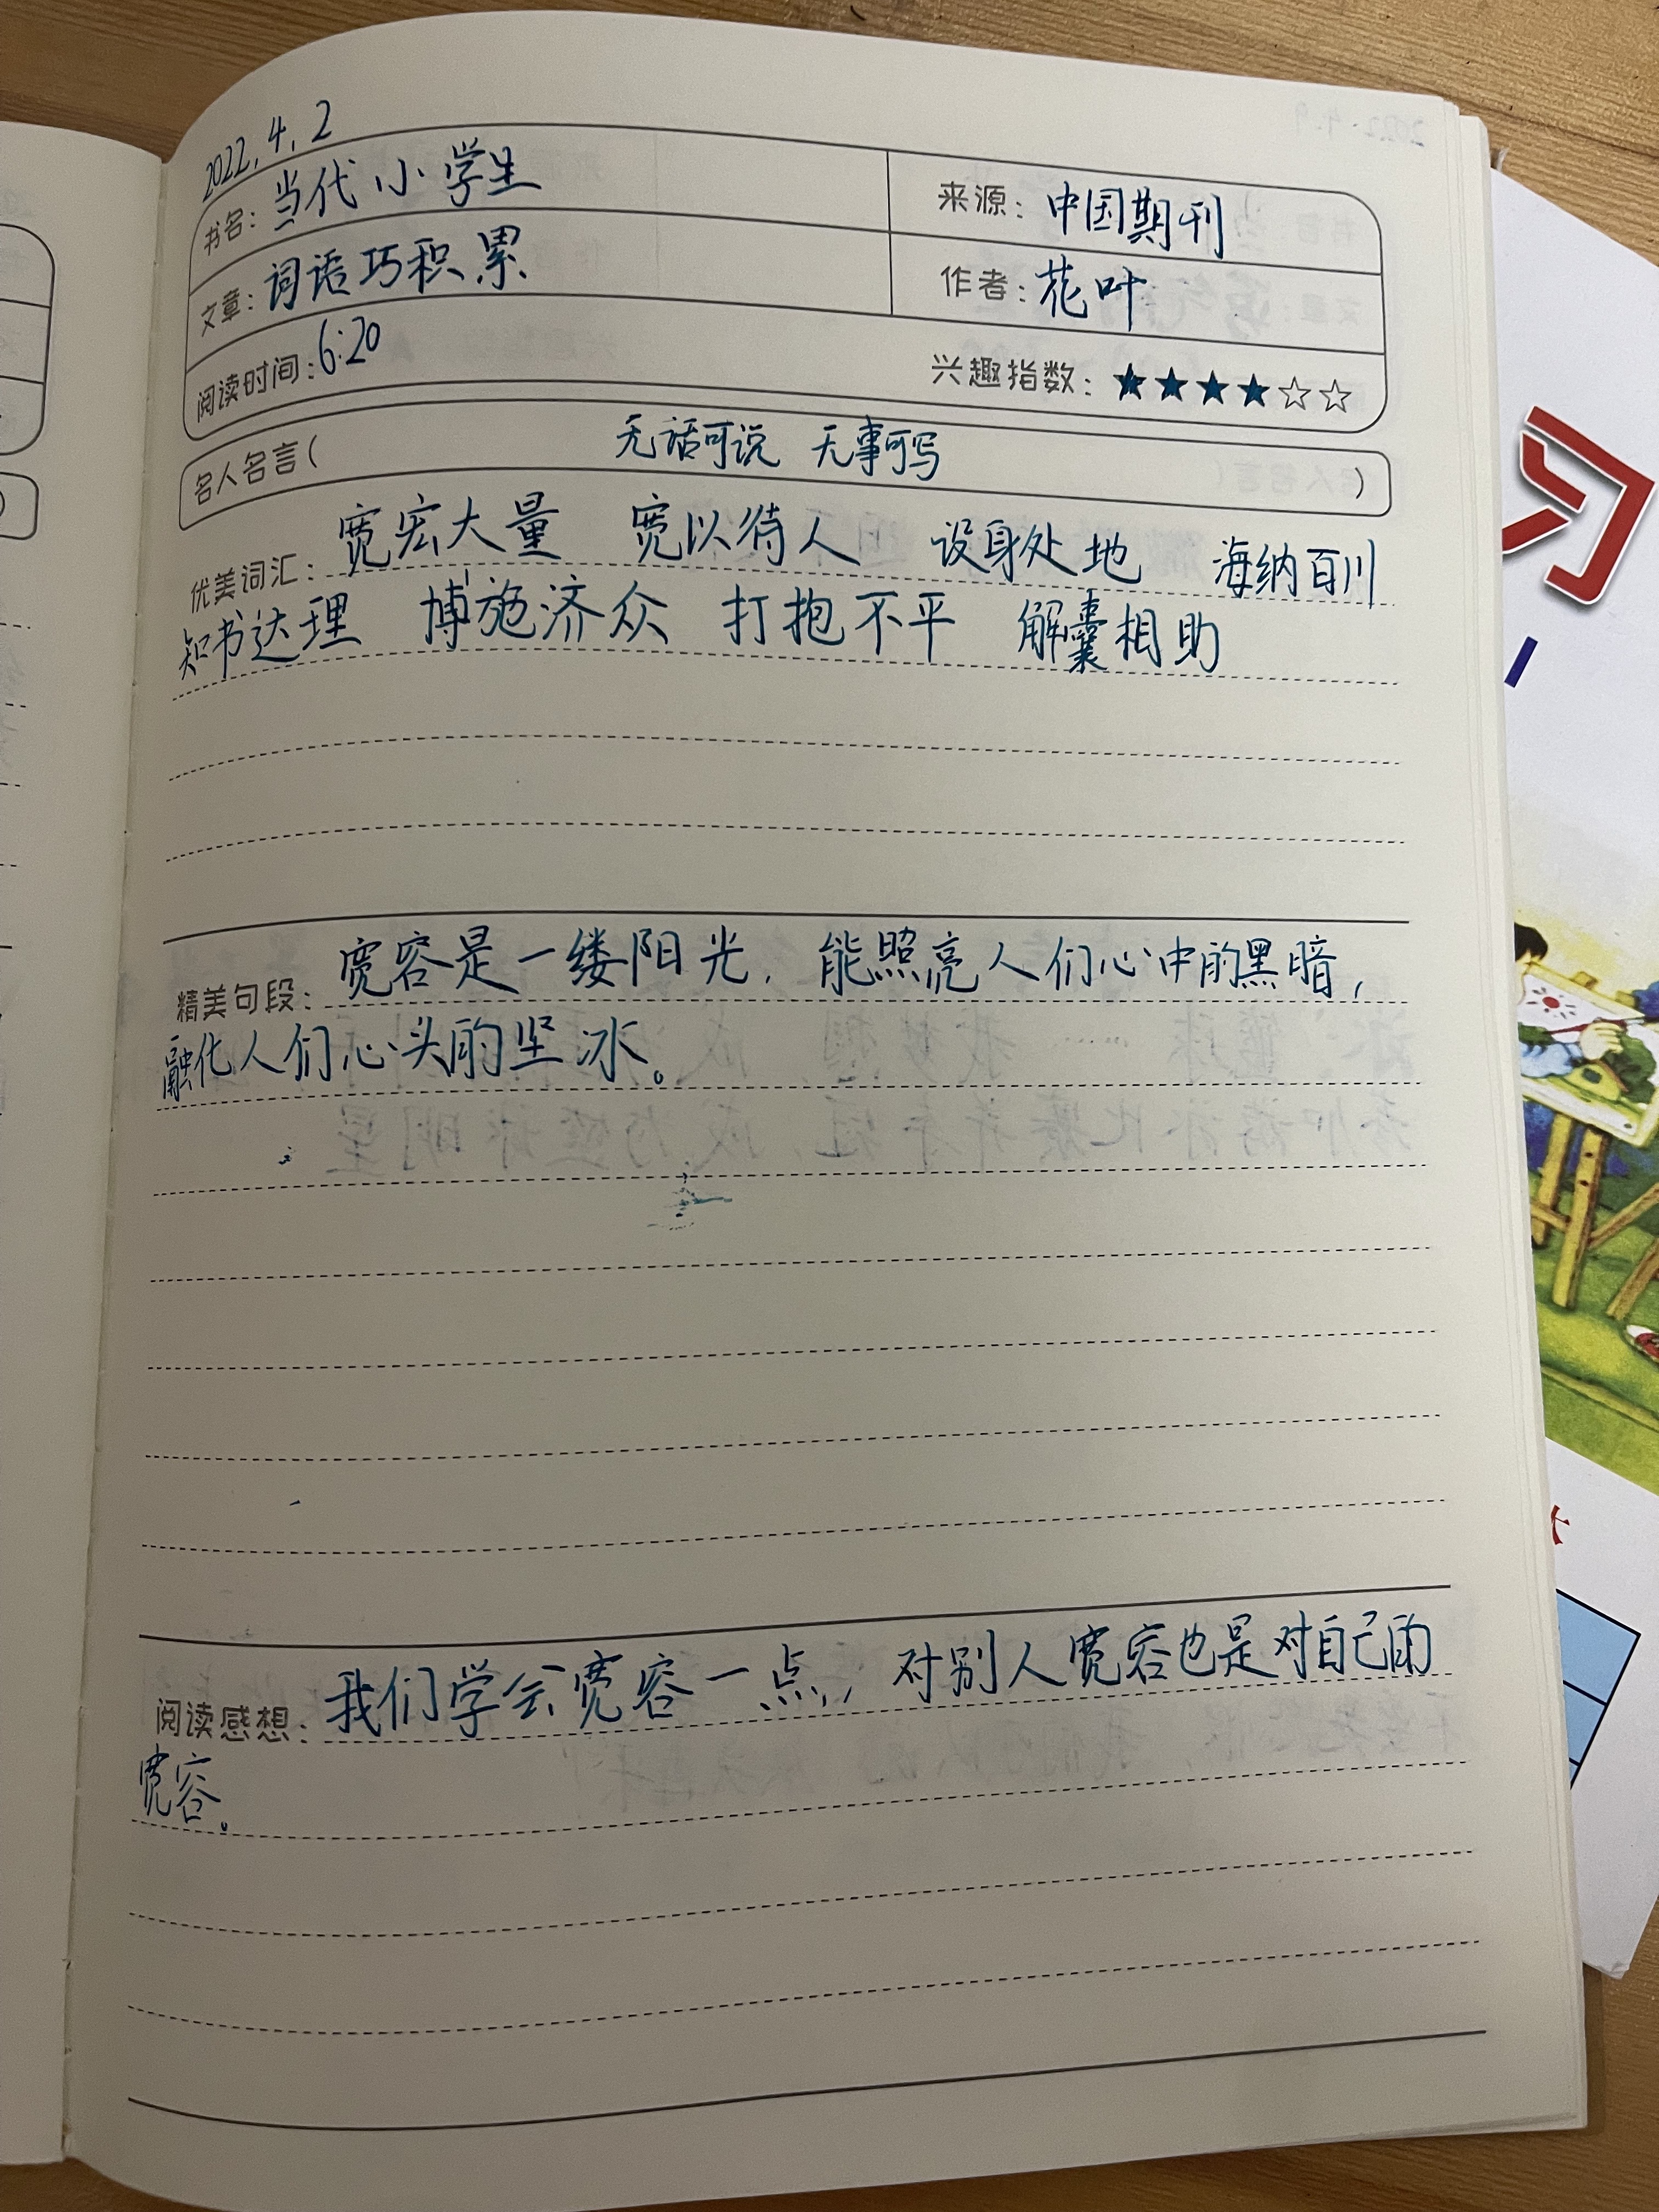 2022.4.2
书名：当代小学生 来源：中国期刊
文章：词语巧积累 作者：花叶
阅读时间：6:20 兴趣指数：★★★★☆☆
名人名言（ 无话可说 无事可写 ）
优美词汇：宽宏大量 宽以待人 设身处地 海纳百川
知书达理 博施济众 打抱不平 解囊相助
精美句段：宽容是一缕阳光，能照亮人们心中的黑暗，
融化人们心头的坚冰。
阅读感想：我们学会宽容一点，对别人宽容也是对自己的
宽容。
习